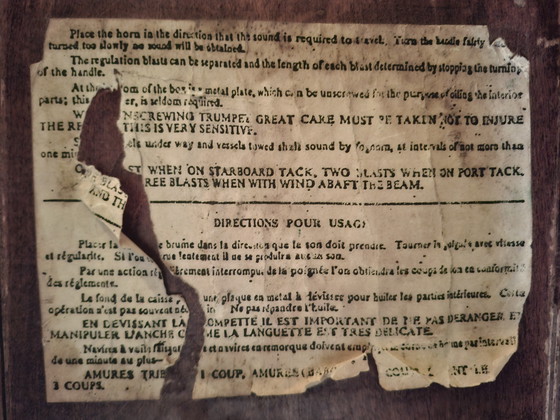 Place the horn in the direction that the sound is required to travel. Turn the handle fairly
turned too slowly no sound will be obtained.
The regulation blasts can be separated and the length of each blast determined by stopping the turning
of the handle.
At the om of the box is metal plate, which can be unscrewed for the purpose of oiling the interior
parts; this er, is seldom required.
NSCREWING TRUMPET GREAT CARE MUST BE TAKEN NOT TO INJURE
THE RE THIS IS VERY SENSITIVE.
els under way and vessels towed shall sound by foghorn, at intervals of not more than
one mi
ST WHEN ON STARBOARD TACK, TWO BLASTS WHEN ON PORT TACK.
REE BLASTS WHEN WITH WIND ABAFT THE BEAM.
BLAS
AND TH
DIRECTIONS POUR USAGE
Placer la brume dans la direction que le son doit prendre. Tourner la poignée avec vitesse
et régularité. Si l'on rne lentement il ne se produira aucun son.
Par une action ré ièrement interrompue de la poignée l'on obtiendra les coups de son en conformité
des règlements.
Le fond de la caisse une plaque en metal à dévisser pour huiler les parties intérieures. Cette
opération n'est pas souvent né Ne pas répandre l'huile.
EN DEVISSANT LA OMPETTE IL EST IMPORTANT DE NE PAS DERANGER ET
MANIPULER L'ANCHE C ME LA LANGUETTE EST TRES DELICATE.
Navires à voile faisant et navires en remorque doivent par intervall
de une minute au plus—
AMURES TRIB 1 COUP, AMURES
3 COUPS.